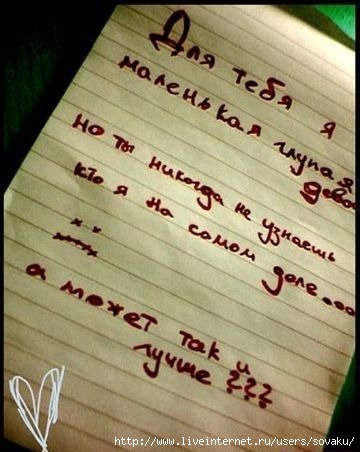 Для тебя я
маленькая глупая
Но ты никогда не узнаешь
кто я на самом деле....
а может так и
лучше???
http://www.liveinternet.ru/users/sovaku/